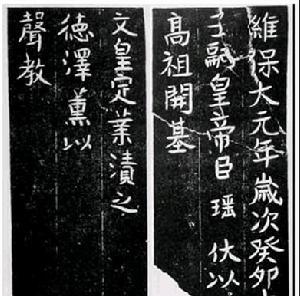 維保大元年歲次癸卯
子嗣皇帝臣瑶伏以
高祖開基
文皇定業漬之
德澤薰以
聲教